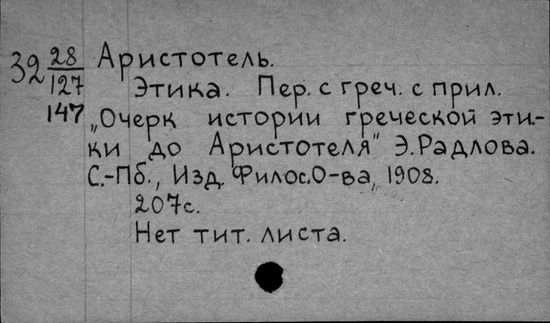 32 28/127 Аристотель.
Этика. Пер. с греч. с прил.
147 „Очерк истории греческой эти-
ки до Аристотеля" Э. Радлова.
С.-Пб., Изд. Филос. О-ва, 1908.
207с.
Нет тит. листа.